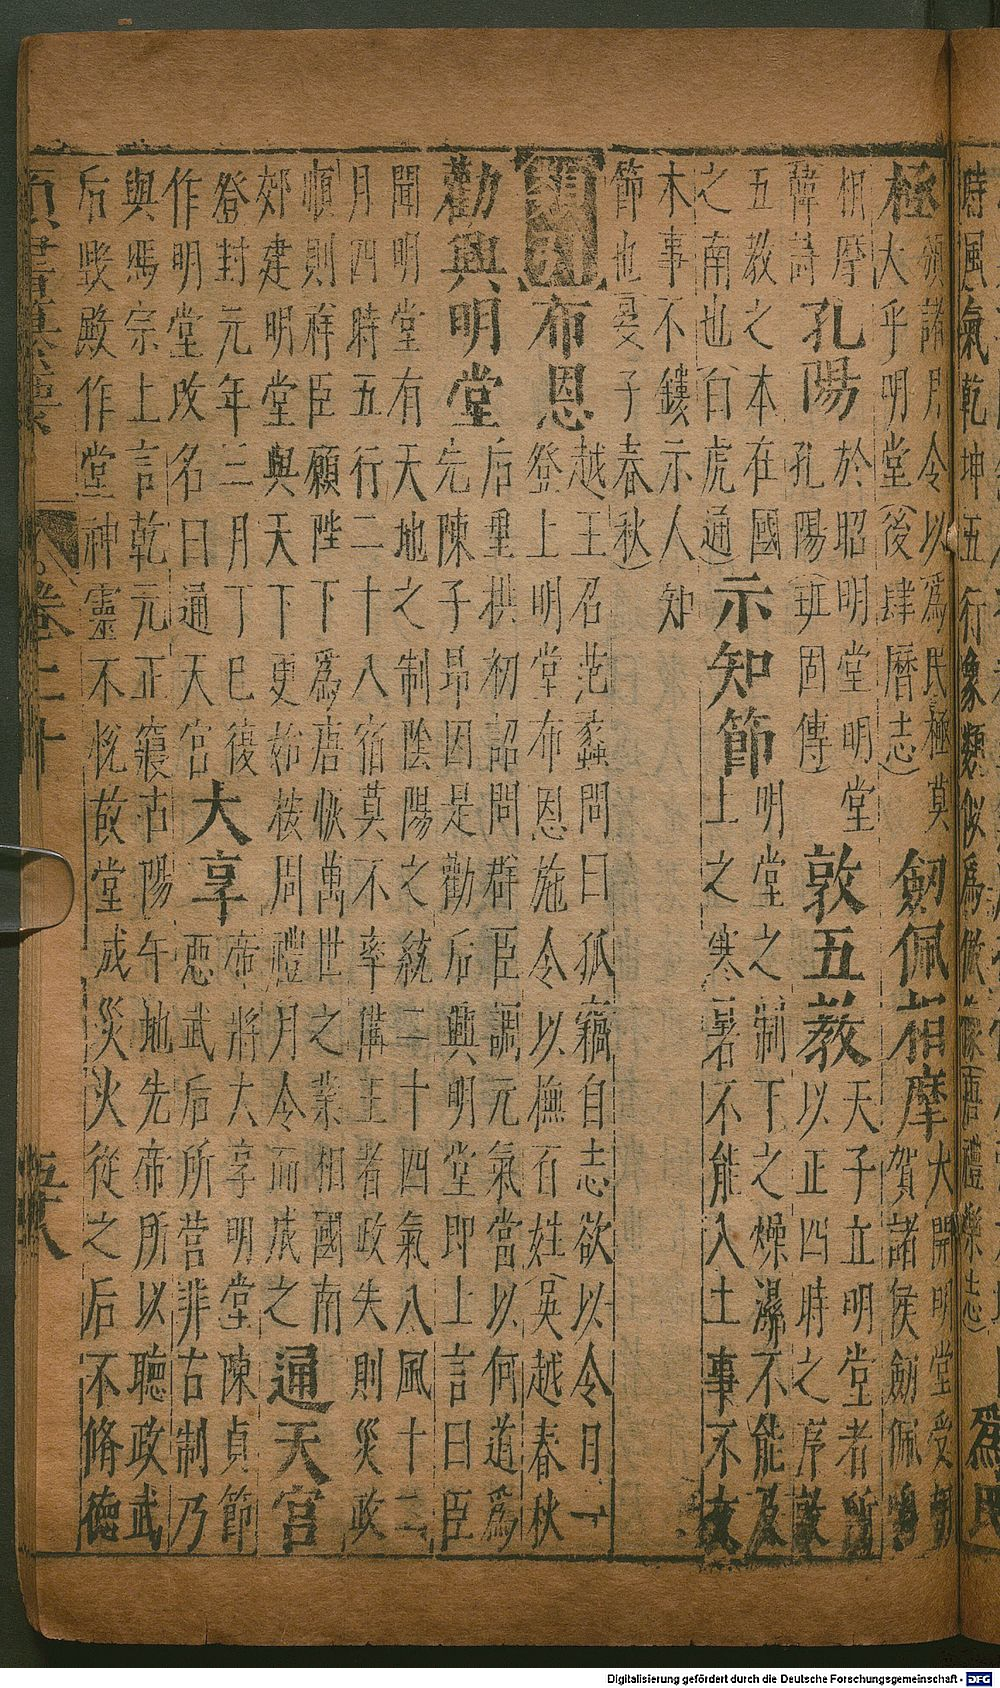 時風氣乾坤五行象類似爲
爲民
極領諸月令以爲民極莫
大乎明堂（後肆曆志）
劒佩相摩大開明堂受朝
賀諸侯劒佩鳴
相摩
韓詩
孔陽於昭明堂明堂
孔陽（班固傳）
敦五教天子立明堂者所
以正四時之序敦
五教之本在國
之南也（白虎通）
示知節明堂之制下之燥濕不能及
上之寒暑不能入土事不文
木事不鏤示人知
節也（晏子春秋）
布恩越王召范蠡問曰孤竊自志欲以今日一
登上明堂布恩施令以撫百姓（吳越春秋
勸興明堂后垂拱初詔問群臣調元氣當以何道爲
先陳子昂因是勸后興明堂即上言曰臣
聞明堂有天地之制陰陽之統二十四氣八風十二
月四時五行二十八宿莫不率備王者政失則災政
順則祥臣願陛下爲唐恢萬世之業相國南
郊建明堂與天下更始按周禮月令而成之
通天宮
登封元年三月丁巳復
作明堂改名曰通天宮
大享帝將大享明堂陳貞節
惡武后所營非古制乃
與馮宗上言乾元正寢古陽午地先帝所以聽政武
后毀殿作堂神靈不悅故堂成災火從之后不脩德
卷二十